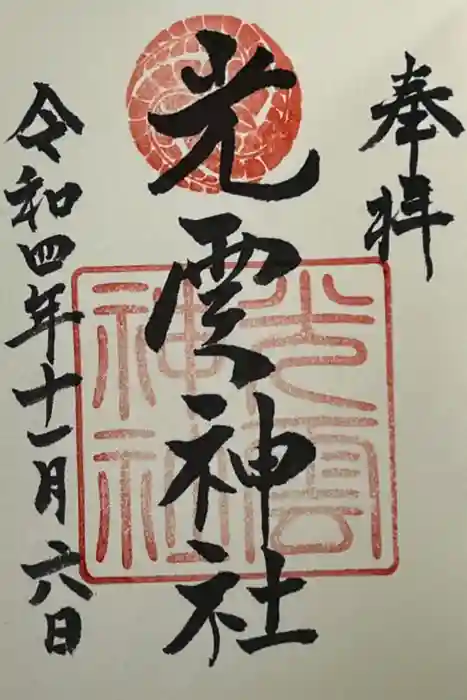 奉拝
光雲神社
光雲神社
令和四年十一月六日